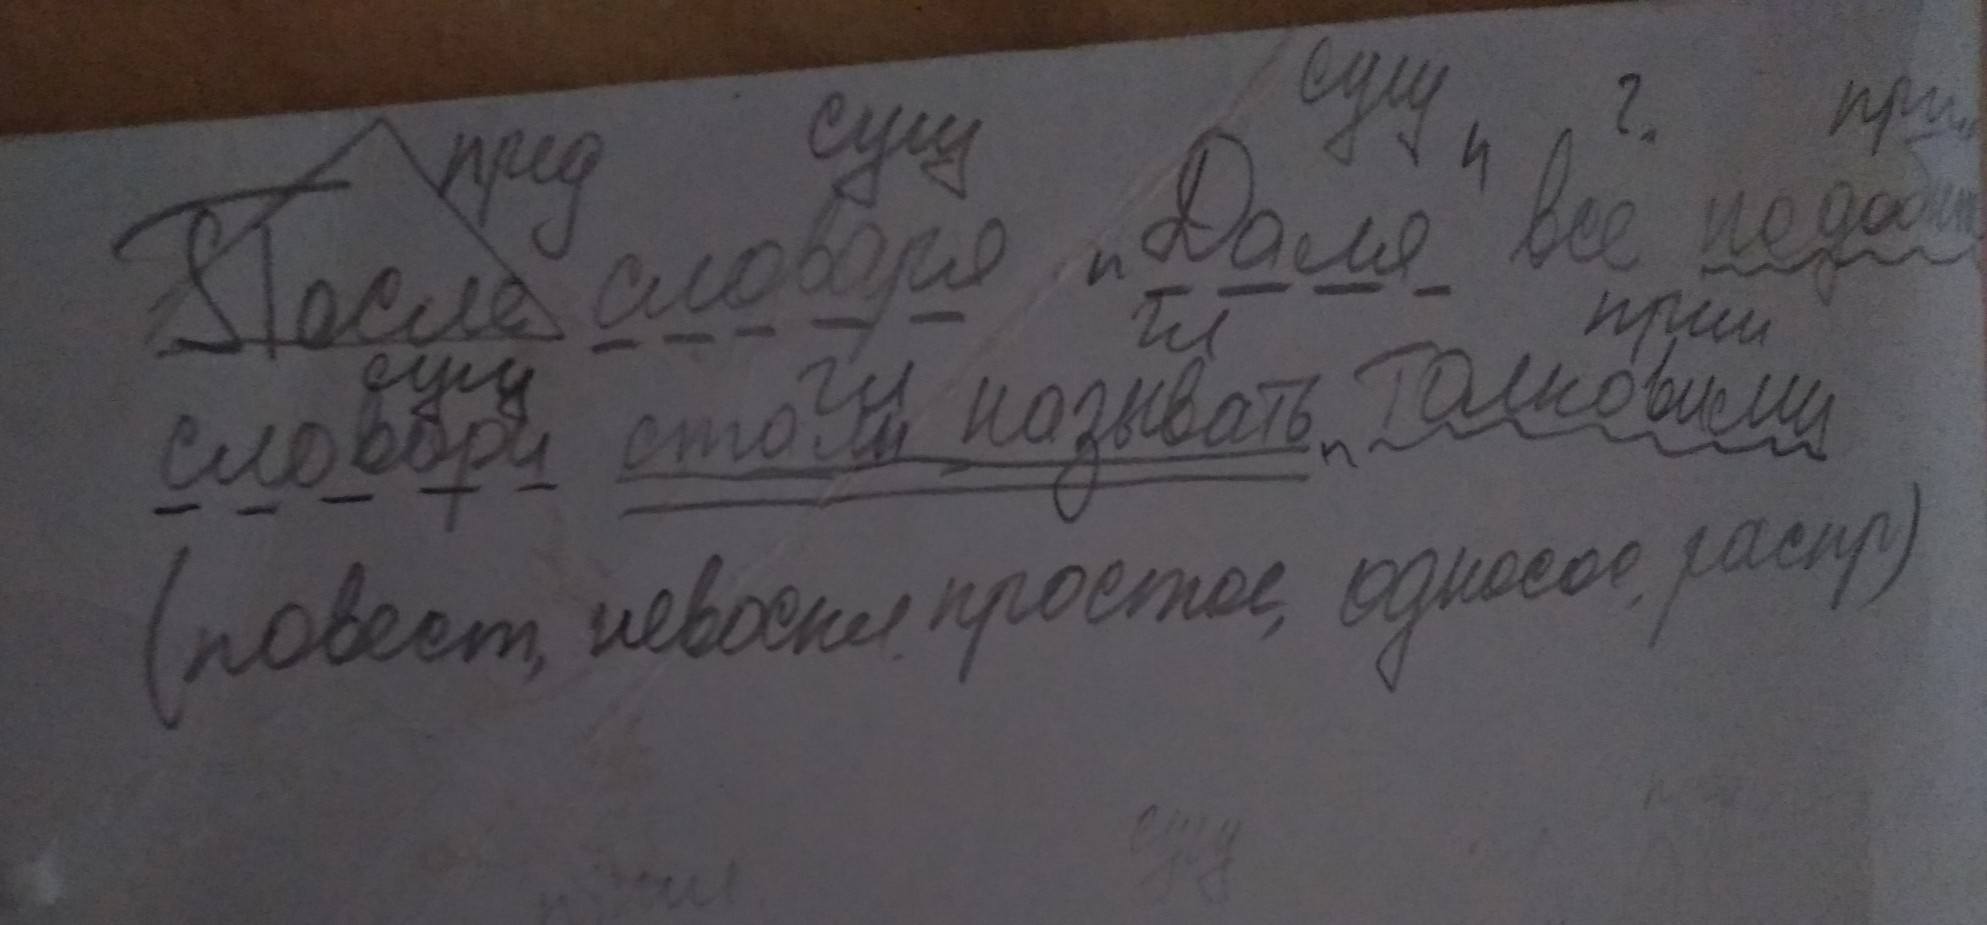 пред сущ сущ ?. при
После словаря „Даля“ все подобн
сущ гл гл прил
словари стали называть „Толковыми
(повест, невоскл. простое, односос. распр)
сущ